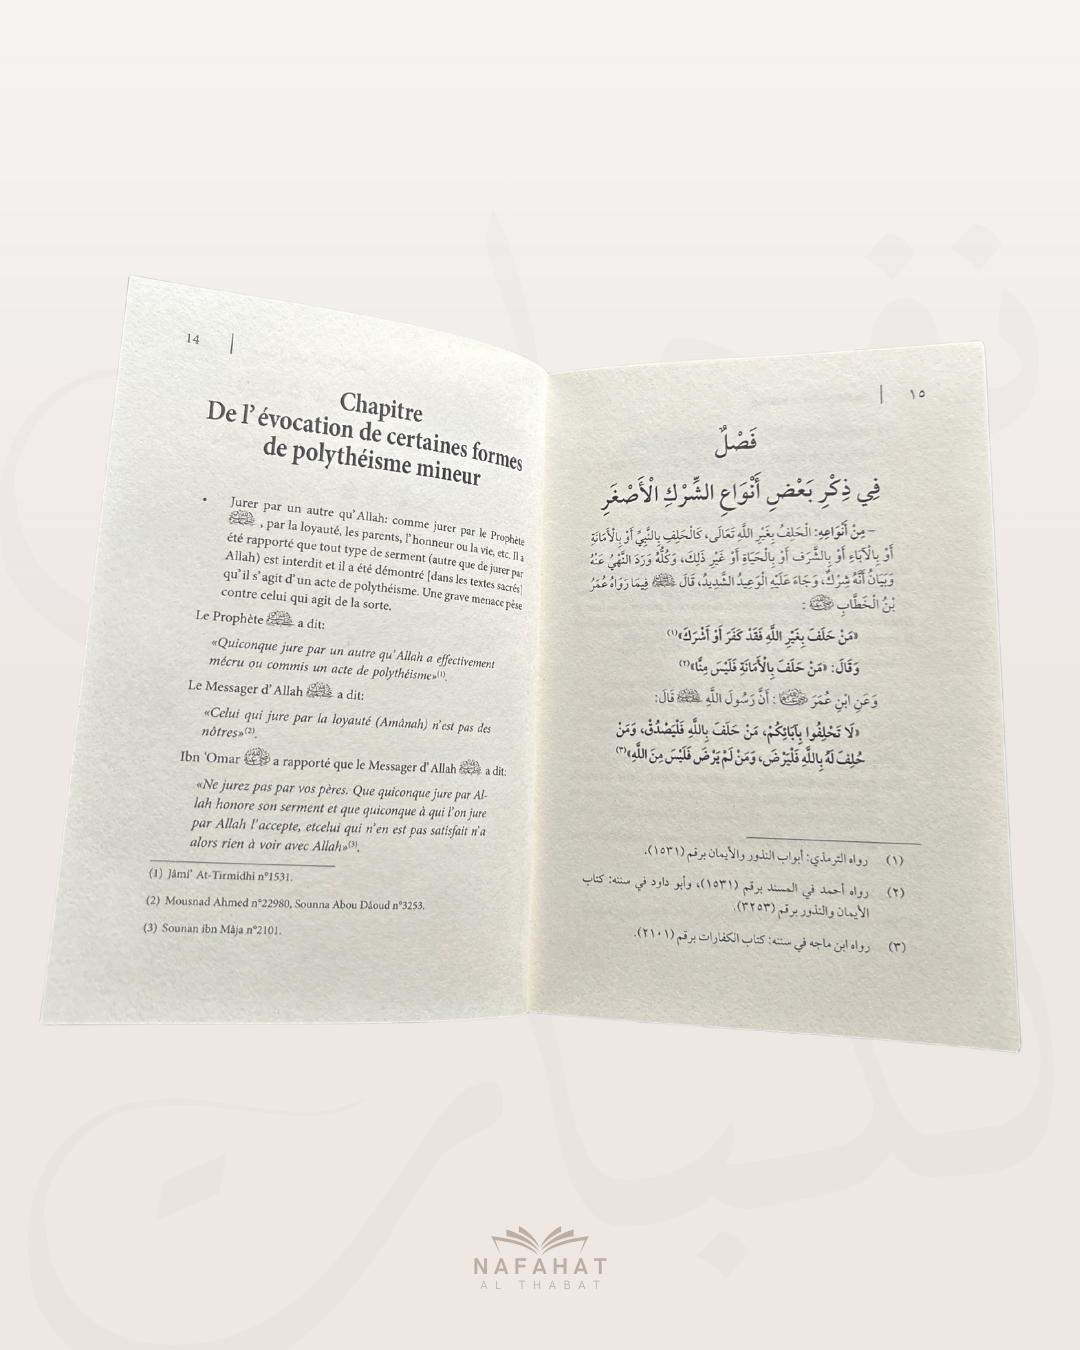 14
Chapitre
De l'évocation de certaines formes
de polythéisme mineur
• Jurer par un autre qu'Allah: comme jurer par le Prophète
ﷺ , par la loyauté, les parents, l'honneur ou la vie, etc. Il a
été rapporté que tout type de serment (autre que de jurer par
Allah) est interdit et il a été démontré [dans les textes sacrés]
qu'il s'agit d'un acte de polythéisme. Une grave menace pèse
contre celui qui agit de la sorte.
Le Prophète ﷺ a dit:
«Quiconque jure par un autre qu'Allah a effectivement
mécru ou commis un acte de polythéisme»(1).
Le Messager d'Allah ﷺ a dit:
«Celui qui jure par la loyauté (Amânah) n'est pas des
nôtres»(2).
Ibn 'Omar a rapporté que le Messager d'Allah ﷺ a dit:
«Ne jurez pas par vos pères. Que quiconque jure par Al-
lah honore son serment et que quiconque à qui l'on jure
par Allah l'accepte, etcelui qui n'en est pas satisfait n'a
alors rien à voir avec Allah»(3).
(1) Jâmi' At-Tirmidhi n°1531.
(2) Mousnad Ahmed n°22980, Sounna Abou Dâoud n°3253.
(3) Sounan ibn Mâja n°2101.
١٥
فَصْلٌ
فِي ذِكْرِ بَعْضِ أَنْوَاعِ الشِّرْكِ الْأَصْغَرِ
– مِنْ أَنْوَاعِهِ: الْحَلِفُ بِغَيْرِ اللَّهِ تَعَالَى، كَالْحَلِفِ بِالنَّبِيِّ أَوْ بِالْأَمَانَةِ
أَوْ بِالْآبَاءِ أَوْ بِالشَّرَفِ أَوْ بِالْحَيَاةِ أَوْ غَيْرِ ذَلِكَ، وَكُلُّهُ وَرَدَ النَّهْيُ عَنْهُ
وَبَيَانُ أَنَّهُ شِرْكٌ، وَجَاءَ عَلَيْهِ الْوَعِيدُ الشَّدِيدُ، قَالَ ﷺ فِيمَا رَوَاهُ عُمَرُ
بْنُ الْخَطَّابِ :
«مَنْ حَلَفَ بِغَيْرِ اللَّهِ فَقَدْ كَفَرَ أَوْ أَشْرَكَ»(١)
وَقَالَ: «مَنْ حَلَفَ بِالْأَمَانَةِ فَلَيْسَ مِنَّا»(٢)
وَعَنِ ابْنِ عُمَرَ : أَنَّ رَسُولَ اللَّهِ ﷺ قَالَ:
«لَا تَحْلِفُوا بِآبَائِكُمْ، مَنْ حَلَفَ بِاللَّهِ فَلْيَصْدُقْ، وَمَنْ
حُلِفَ لَهُ بِاللَّهِ فَلْيَرْضَ، وَمَنْ لَمْ يَرْضَ فَلَيْسَ مِنَ اللَّهِ»(٣)
(١) رواه الترمذي: أبواب النذور والأيمان برقم (١٥٣١).
(٢) رواه أحمد في المسند برقم (١٥٣١)، وأبو داود في سننه: كتاب
الأيمان والنذور برقم (٣٢٥٣).
(٣) رواه ابن ماجه في سننه: كتاب الكفارات برقم (٢١٠١).
NAFAHAT
AL THABAT